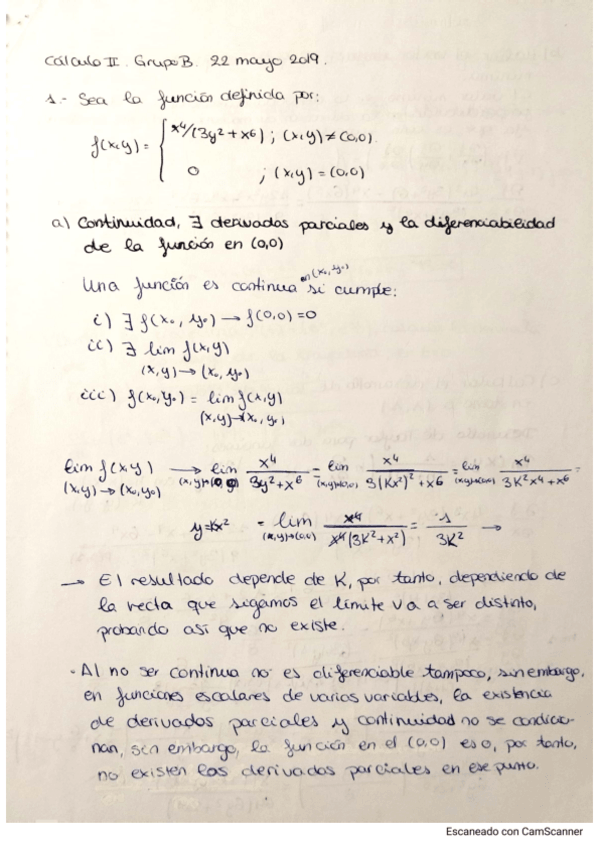 Cálculo II. Grupo B. 22 mayo 2019.
1.- Sea la función definida por:
f(x,y) = { x⁴/(3y²+x⁶) ; (x,y) ≠ (0,0)
0 ; (x,y) = (0,0)
a) Continuidad, ∃ derivadas parciales y la diferenciabilidad
de la función en (0,0)
Una función es continua en (x₀, y₀) si cumple:
i) ∃ f(x₀, y₀) → f(0,0) = 0
ii) ∃ lim f(x,y)
(x,y) → (x₀, y₀)
iii) f(x₀, y₀) = lim f(x,y)
(x,y) → (x₀, y₀)
lim f(x,y) → lim x⁴/(3y²+x⁶) = lim x⁴/(3(Kx²)²+x⁶) = lim x⁴/(3K²x⁴+x⁶) =
(x,y) → (x₀, y₀) (x,y)→(0,0) (x,y)→(0,0) (x,y)→(0,0)
y=Kx² = lim x⁴/(x⁴(3K²+x²)) = 1/(3K²) →
(x,y)→(0,0)
→ El resultado depende de K, por tanto, dependiendo de
la recta que sigamos el límite va a ser distinto,
probando así que no existe.
· Al no ser continua no es diferenciable tampoco, sin embargo,
en funciones escalares de varias variables, la existencia
de derivadas parciales y continuidad no se condicio-
nan, sin embargo, la función en el (0,0) es 0, por tanto,
no existen las derivadas parciales en ese punto.
Escaneado con CamScanner